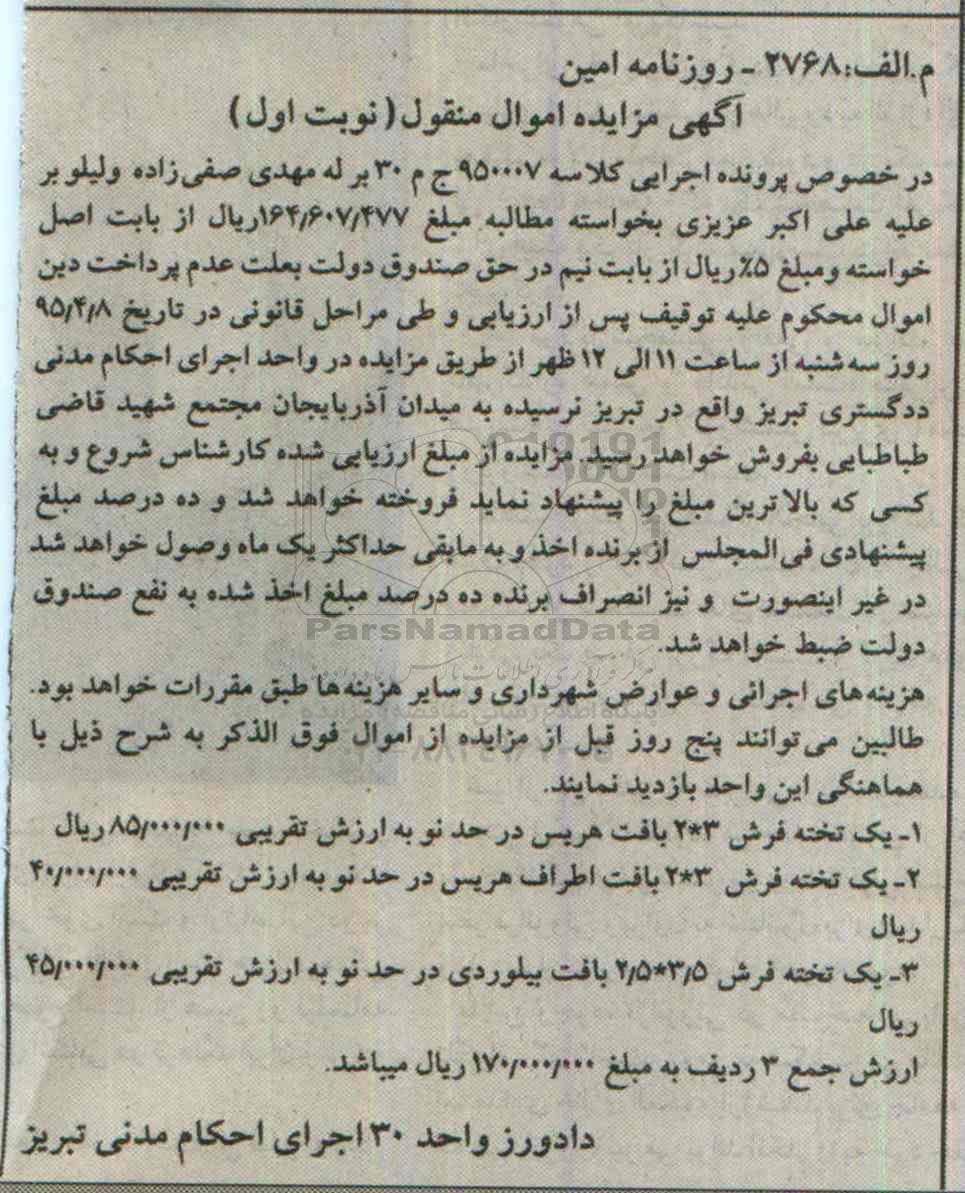 م.الف:۲۷۶۸ - روزنامه امین
آگهی مزایده اموال منقول(نوبت اول)
در خصوص پرونده اجرایی کلاسه ۹۵۰۰۰۷ ج م ۳۰ بر له مهدی صفی‌زاده ولیلو بر
علیه علی اکبر عزیزی بخواسته مطالبه مبلغ ۱۶۴/۶۰۷/۴۷۷ریال از بابت اصل
خواسته ومبلغ ۵٪ریال از بابت نیم در حق صندوق دولت بعلت عدم پرداخت دین
اموال محکوم علیه توقیف پس از ارزیابی و طی مراحل قانونی در تاریخ ۹۵/۴/۸
روز سه‌شنبه از ساعت ۱۱الی ۱۲ ظهر از طریق مزایده در واحد اجرای احکام مدنی
ددگستری تبریز واقع در تبریز نرسیده به میدان آذربایجان مجتمع شهید قاضی
طباطبایی بفروش خواهد رسید. مزایده از مبلغ ارزیابی شده کارشناس شروع و به
کسی که بالاترین مبلغ را پیشنهاد نماید فروخته خواهد شد و ده درصد مبلغ
پیشنهادی فی‌المجلس از برنده اخذ و به مابقی حداکثر یک ماه وصول خواهد شد
در غیر اینصورت و نیز انصراف برنده ده درصد مبلغ اخذ شده به نفع صندوق
دولت ضبط خواهد شد.
ParsNamadData
هزینه‌های اجرائی و عوارض شهرداری و سایر هزینه‌ها طبق مقررات خواهد بود.
طالبین می‌توانند پنج روز قبل از مزایده از اموال فوق الذکر به شرح ذیل با
هماهنگی این واحد بازدید نمایند.
۱- یک تخته فرش ۳*۲ بافت هریس در حد نو به ارزش تقریبی ۸۵/۰۰۰/۰۰۰ ریال
۲- یک تخته فرش ۳*۲ بافت اطراف هریس در حد نو به ارزش تقریبی ۴۰/۰۰۰/۰۰۰
ریال
۳- یک تخته فرش ۳/۵*۲/۵ بافت بیلوردی در حد نو به ارزش تقریبی ۴۵/۰۰۰/۰۰۰
ریال
ارزش جمع ۳ ردیف به مبلغ ۱۷۰/۰۰۰/۰۰۰ ریال میباشد.
دادورز واحد ۳۰ اجرای احکام مدنی تبریز